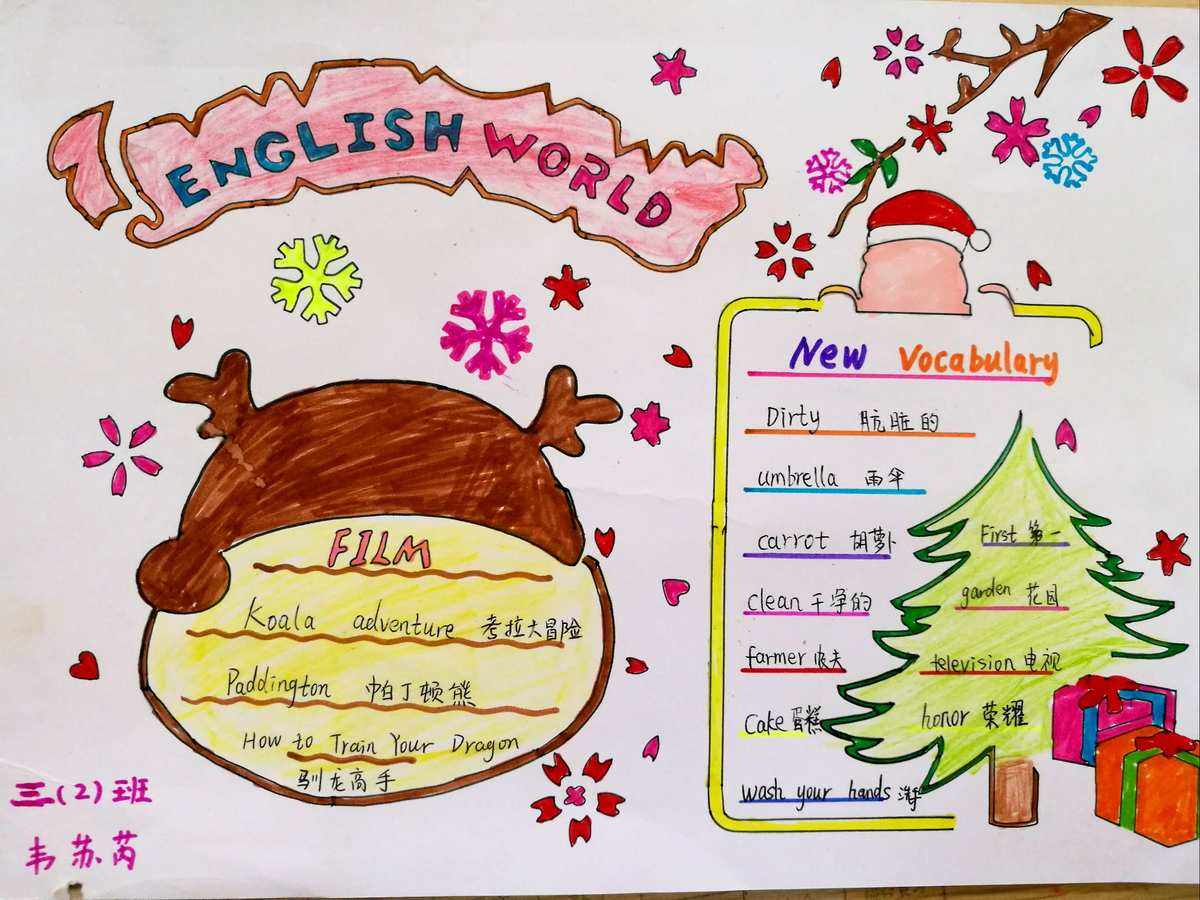 ENGLISH WORLD
FILM
Koala adventure 考拉大冒险
Paddington 帕丁顿熊
How to Train Your Dragon
驯龙高手
三(2)班
韦苏芮
New Vocabulary
Dirty 肮脏的
umbrella 雨伞
carrot 胡萝卜
clean 干净的
farmer 农夫
Cake 蛋糕
wash your hands 洗手
First 第一
garden 花园
television 电视
honor 荣耀